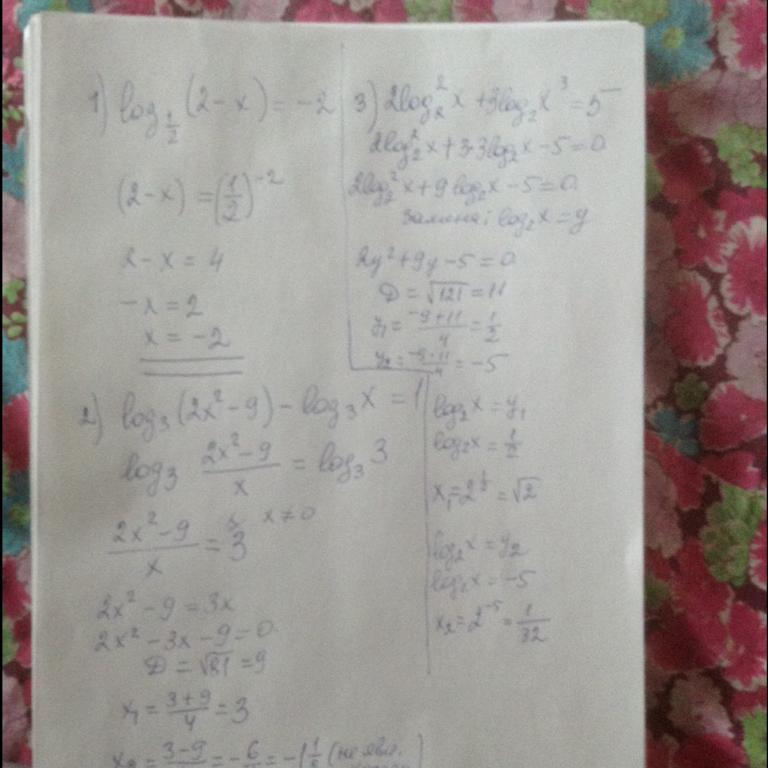 1) log_{1/2} (2 - x) = -2
(2 - x) = (1/2)^{-2}
2 - x = 4
-x = 2
x = -2
2) log₃(2x² - 9) - log₃x = 1
log₃ (2x² - 9)/x = log₃3
(2x² - 9)/x = 3 x ≠ 0
2x² - 9 = 3x
2x² - 3x - 9 = 0
D = √81 = 9
x₁ = (3+9)/4 = 3
3) 2log₂²x + 3log₂x³ = 5
2log₂²x + 3·3log₂x - 5 = 0
2log₂²x + 9log₂x - 5 = 0
замена: log₂x = y
2y² + 9y - 5 = 0
D = √121 = 11
y₁ = (-9+11)/4 = 1/2
y₂ = (-9-11)/4 = -5
log₂x = y₁
log₂x = 1/2
x₁ = 2^{1/2} = √2
log₂x = y₂
log₂x = -5
x₂ = 2^{-5} = 1/32